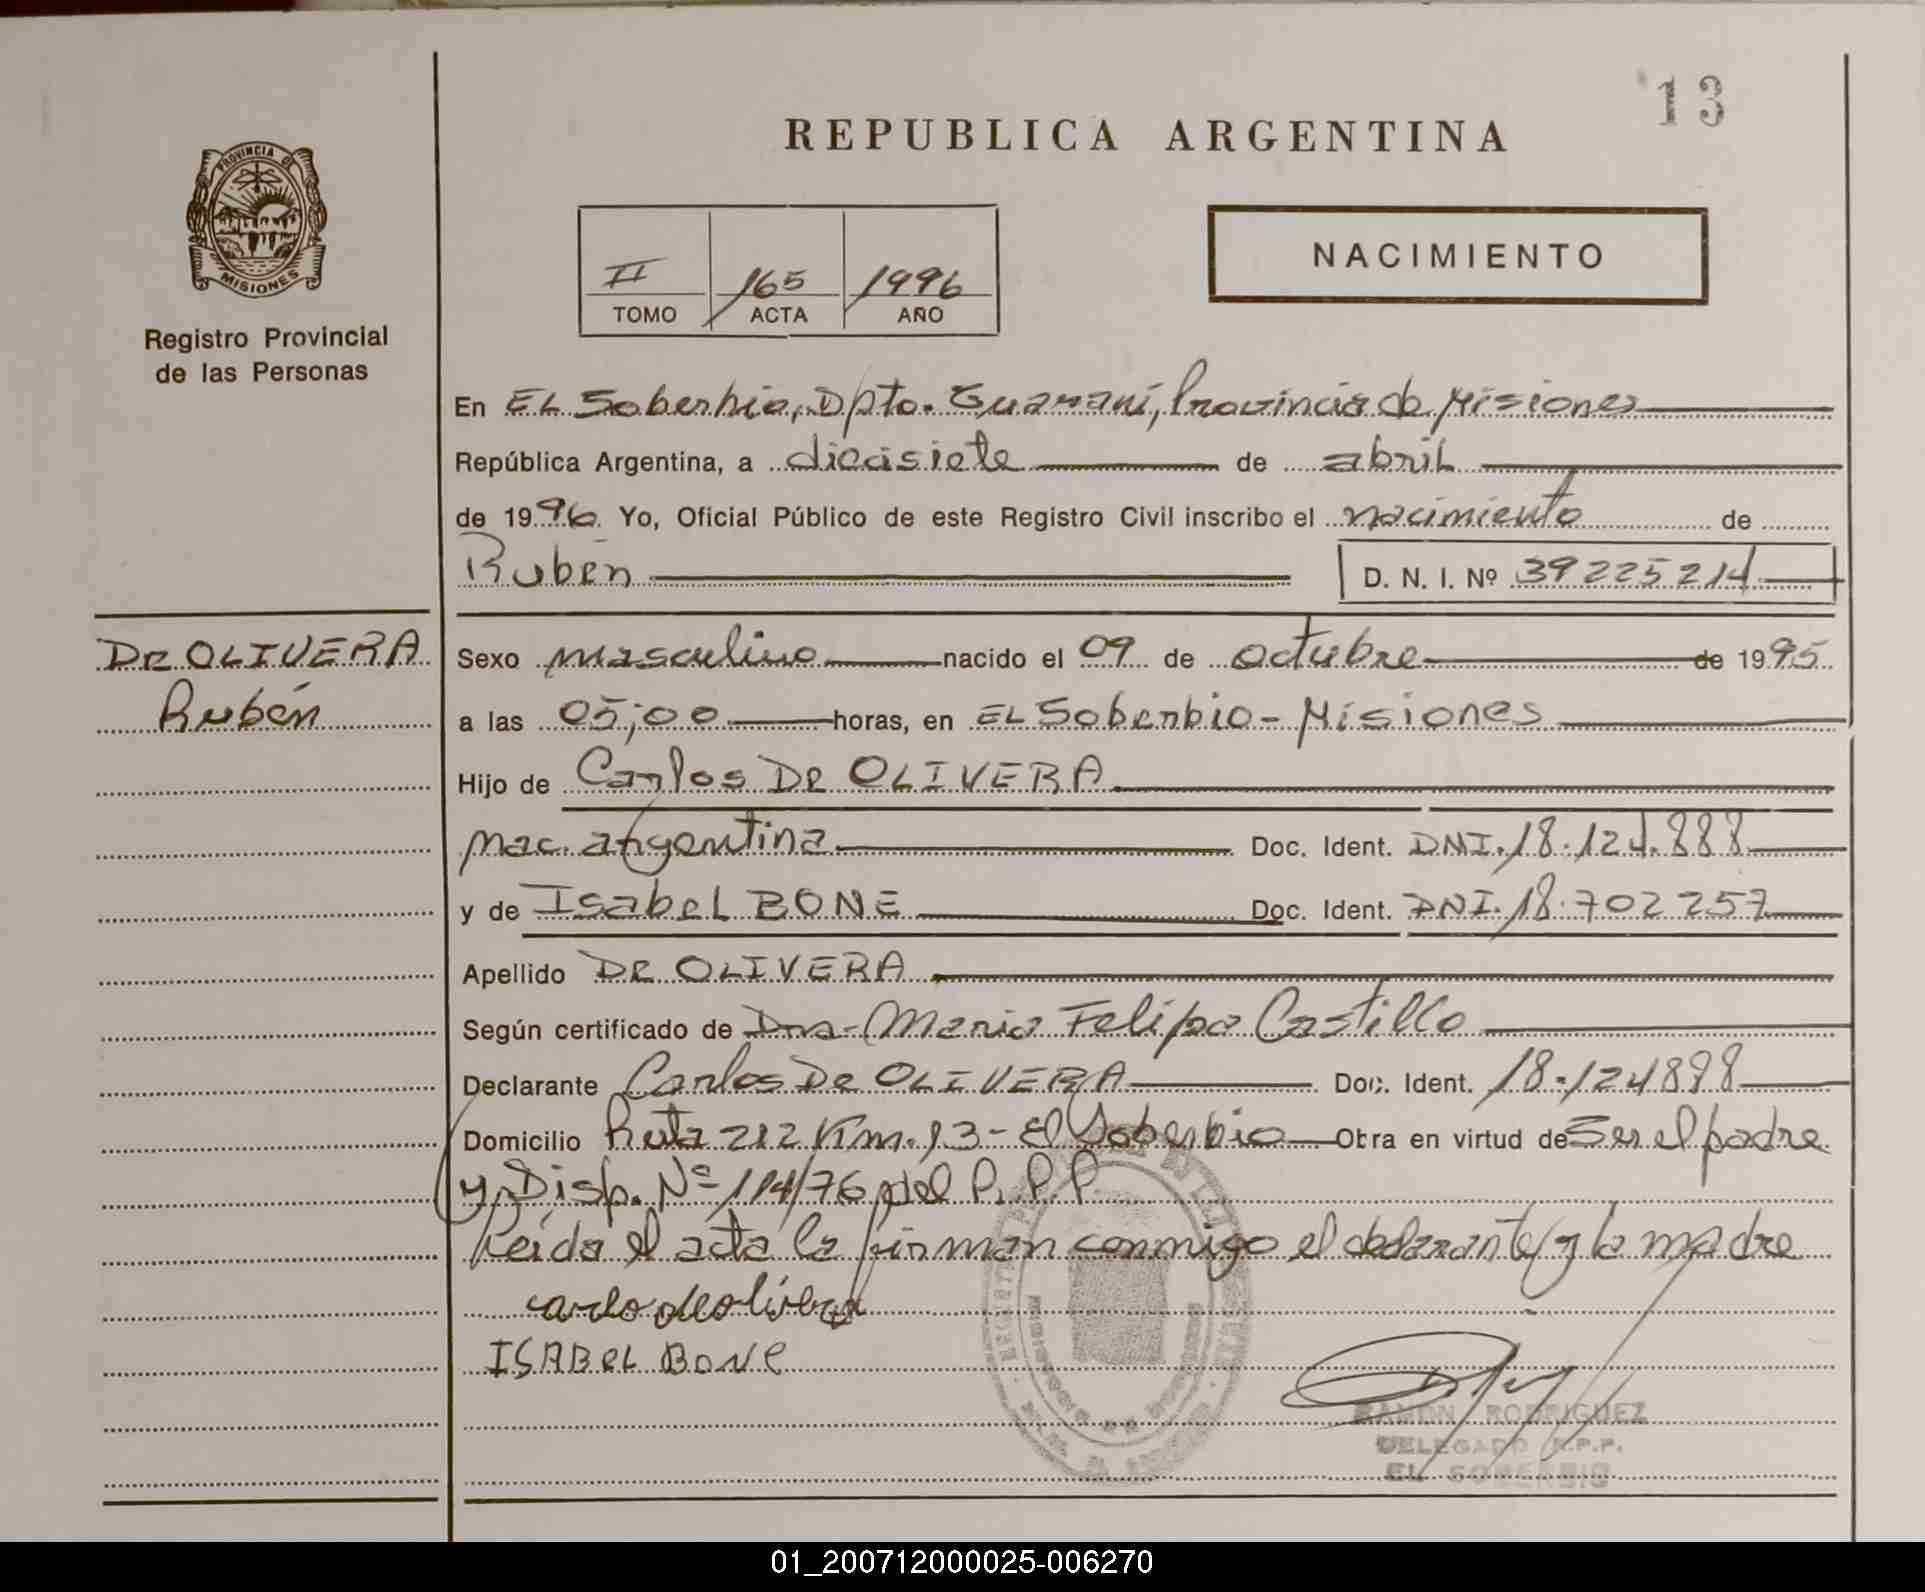 13
REPUBLICA ARGENTINA
PROVINCIA D
MISIONES
II 165 1996
TOMO ACTA AÑO
NACIMIENTO
Registro Provincial
de las Personas
En EL Soberbio, Dpto. Guaraní, Provincia de Misiones
República Argentina, a diecisiete de abril
de 1996 Yo, Oficial Público de este Registro Civil inscribo el nacimiento de
Rubén D. N. I. Nº 39225214
De OLIVERA
Rubén
Sexo masculino nacido el 09 de octubre de 1995
a las 05;00 horas, en EL Soberbio - Misiones
Hijo de Carlos De OLIVERA
nac. argentina Doc. Ident. DNI. 18.124.888
y de Isabel BONE Doc. Ident. DNI. 18.702257
Apellido De OLIVERA
Según certificado de Dra. Maria Felipa Castillo
Declarante Carlos De OLIVERA Doc. Ident. 18.124898
Domicilio Ruta 212 Km. 13 - El Soberbio Obra en virtud de Ser el padre
y Disp. Nº 114/76 del R.P.P.
Leída el acta la firman conmigo el declarante y la madre
carlo deolivera
ISABEL BONE
RAMON RODRIGUEZ
DELEGADO R.P.P.
EL SOBERBIO
01_200712000025-006270